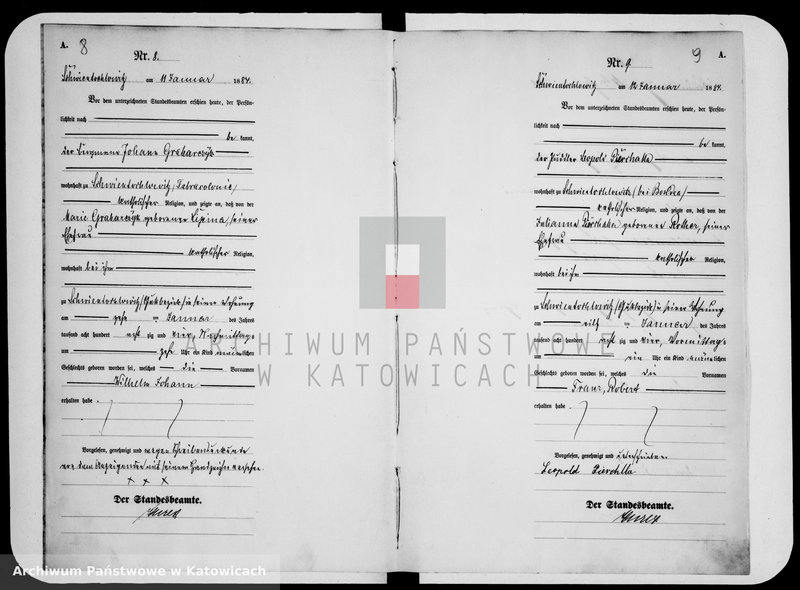 A.
8
Nr. 8.
Schwientochlowitz am 11 Januar 1884.
Vor dem unterzeichneten Standesbeamten erschien heute, der Persön-
lichkeit nach
be kannt,
der Johann
wohnhaft zu Schwientochlowitz
katholischer Religion, und zeigte an, daß von der
Marie geborenen seiner
Ehefrau
katholischer Religion,
wohnhaft bei ihm
zu Schwientochlowitz in seiner Wohnung
am zehn ten Januar des Jahres
tausend acht hundert acht zig und vier Nachmittags
um zehn Uhr ein Kind männlichen
Geschlechts geboren worden sei, welches die Vornamen
Wilhelm Johann
erhalten habe
Vorgelesen, genehmigt und wegen
von dem Anzeigenden mit seinem Handzeichen versehen
+ + +
Der Standesbeamte.
9
A.
Nr. 9.
Schwientochlowitz am 12 Januar 1884.
Vor dem unterzeichneten Standesbeamten erschien heute, der Persön-
lichkeit nach
be kannt,
der Puddler Leopold
wohnhaft zu Schwientochlowitz
katholischer Religion, und zeigte an, daß von der
Julianna geborenen Rother, seiner
Ehefrau
katholischer Religion,
wohnhaft bei ihm
zu Schwientochlowitz in seiner Wohnung
am elf ten Januar des Jahres
tausend acht hundert acht zig und vier, Vormittags
um ein Uhr ein Kind männlichen
Geschlechts geboren worden sei, welches die Vornamen
Franz, Robert
erhalten habe
Vorgelesen, genehmigt und unterschrieben
Leopold
Der Standesbeamte.
ARCHIWUM PAŃSTWOWE
W KATOWICACH
Archiwum Państwowe w Katowicach